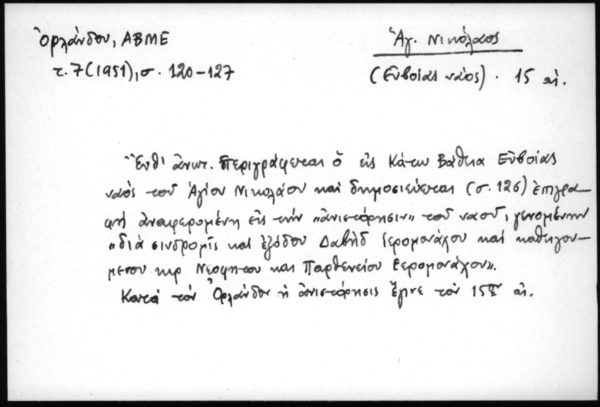 Ὀρλάνδου, ΑΒΜΕ
τ. 7 (1951), σ. 120-127
Ἁγ. Νικόλαος
(Εὐβοίας ναὸς). 15 αἰ.
Ἔνθ' ἀνωτ. περιγράφεται ὁ εἰς Κάτω Βάθεια Εὐβοίας
ναὸς τοῦ Ἁγίου Νικολάου καὶ δημοσιεύεται (σ. 126) ἐπιγρα-
φὴ ἀναφερομένη εἰς τὴν "ἀνιστόρησιν" τοῦ ναοῦ, γενομένην
"διὰ σινδρομῆς καὶ ἐξόδου Δαβὴδ ἱερομονάχου καὶ καθηγου-
μενου κυρ Νεοφητου καὶ Παρθενείου ἱερομονάχου".
Κατὰ τὸν Ὀρλάνδον ἡ ἀνιστόρησις ἔγινε τὸν 15ον αἰ.